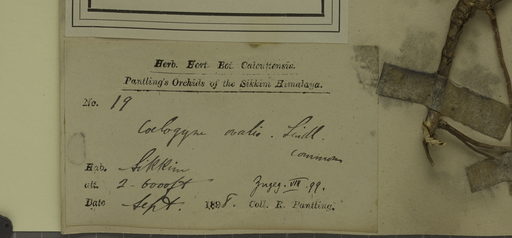 Herb. Hort. Bot. Calcuttensis.
Pantling's Orchids of the Sikkim Himalaya.
No. 19
Coelogyne ovalis. Lindl.
common
Hab. Sikkim
alt. 2-6000 ft
Zugeg. VIII. 99.
Date Sept. 1898. Coll. R. Pantling.